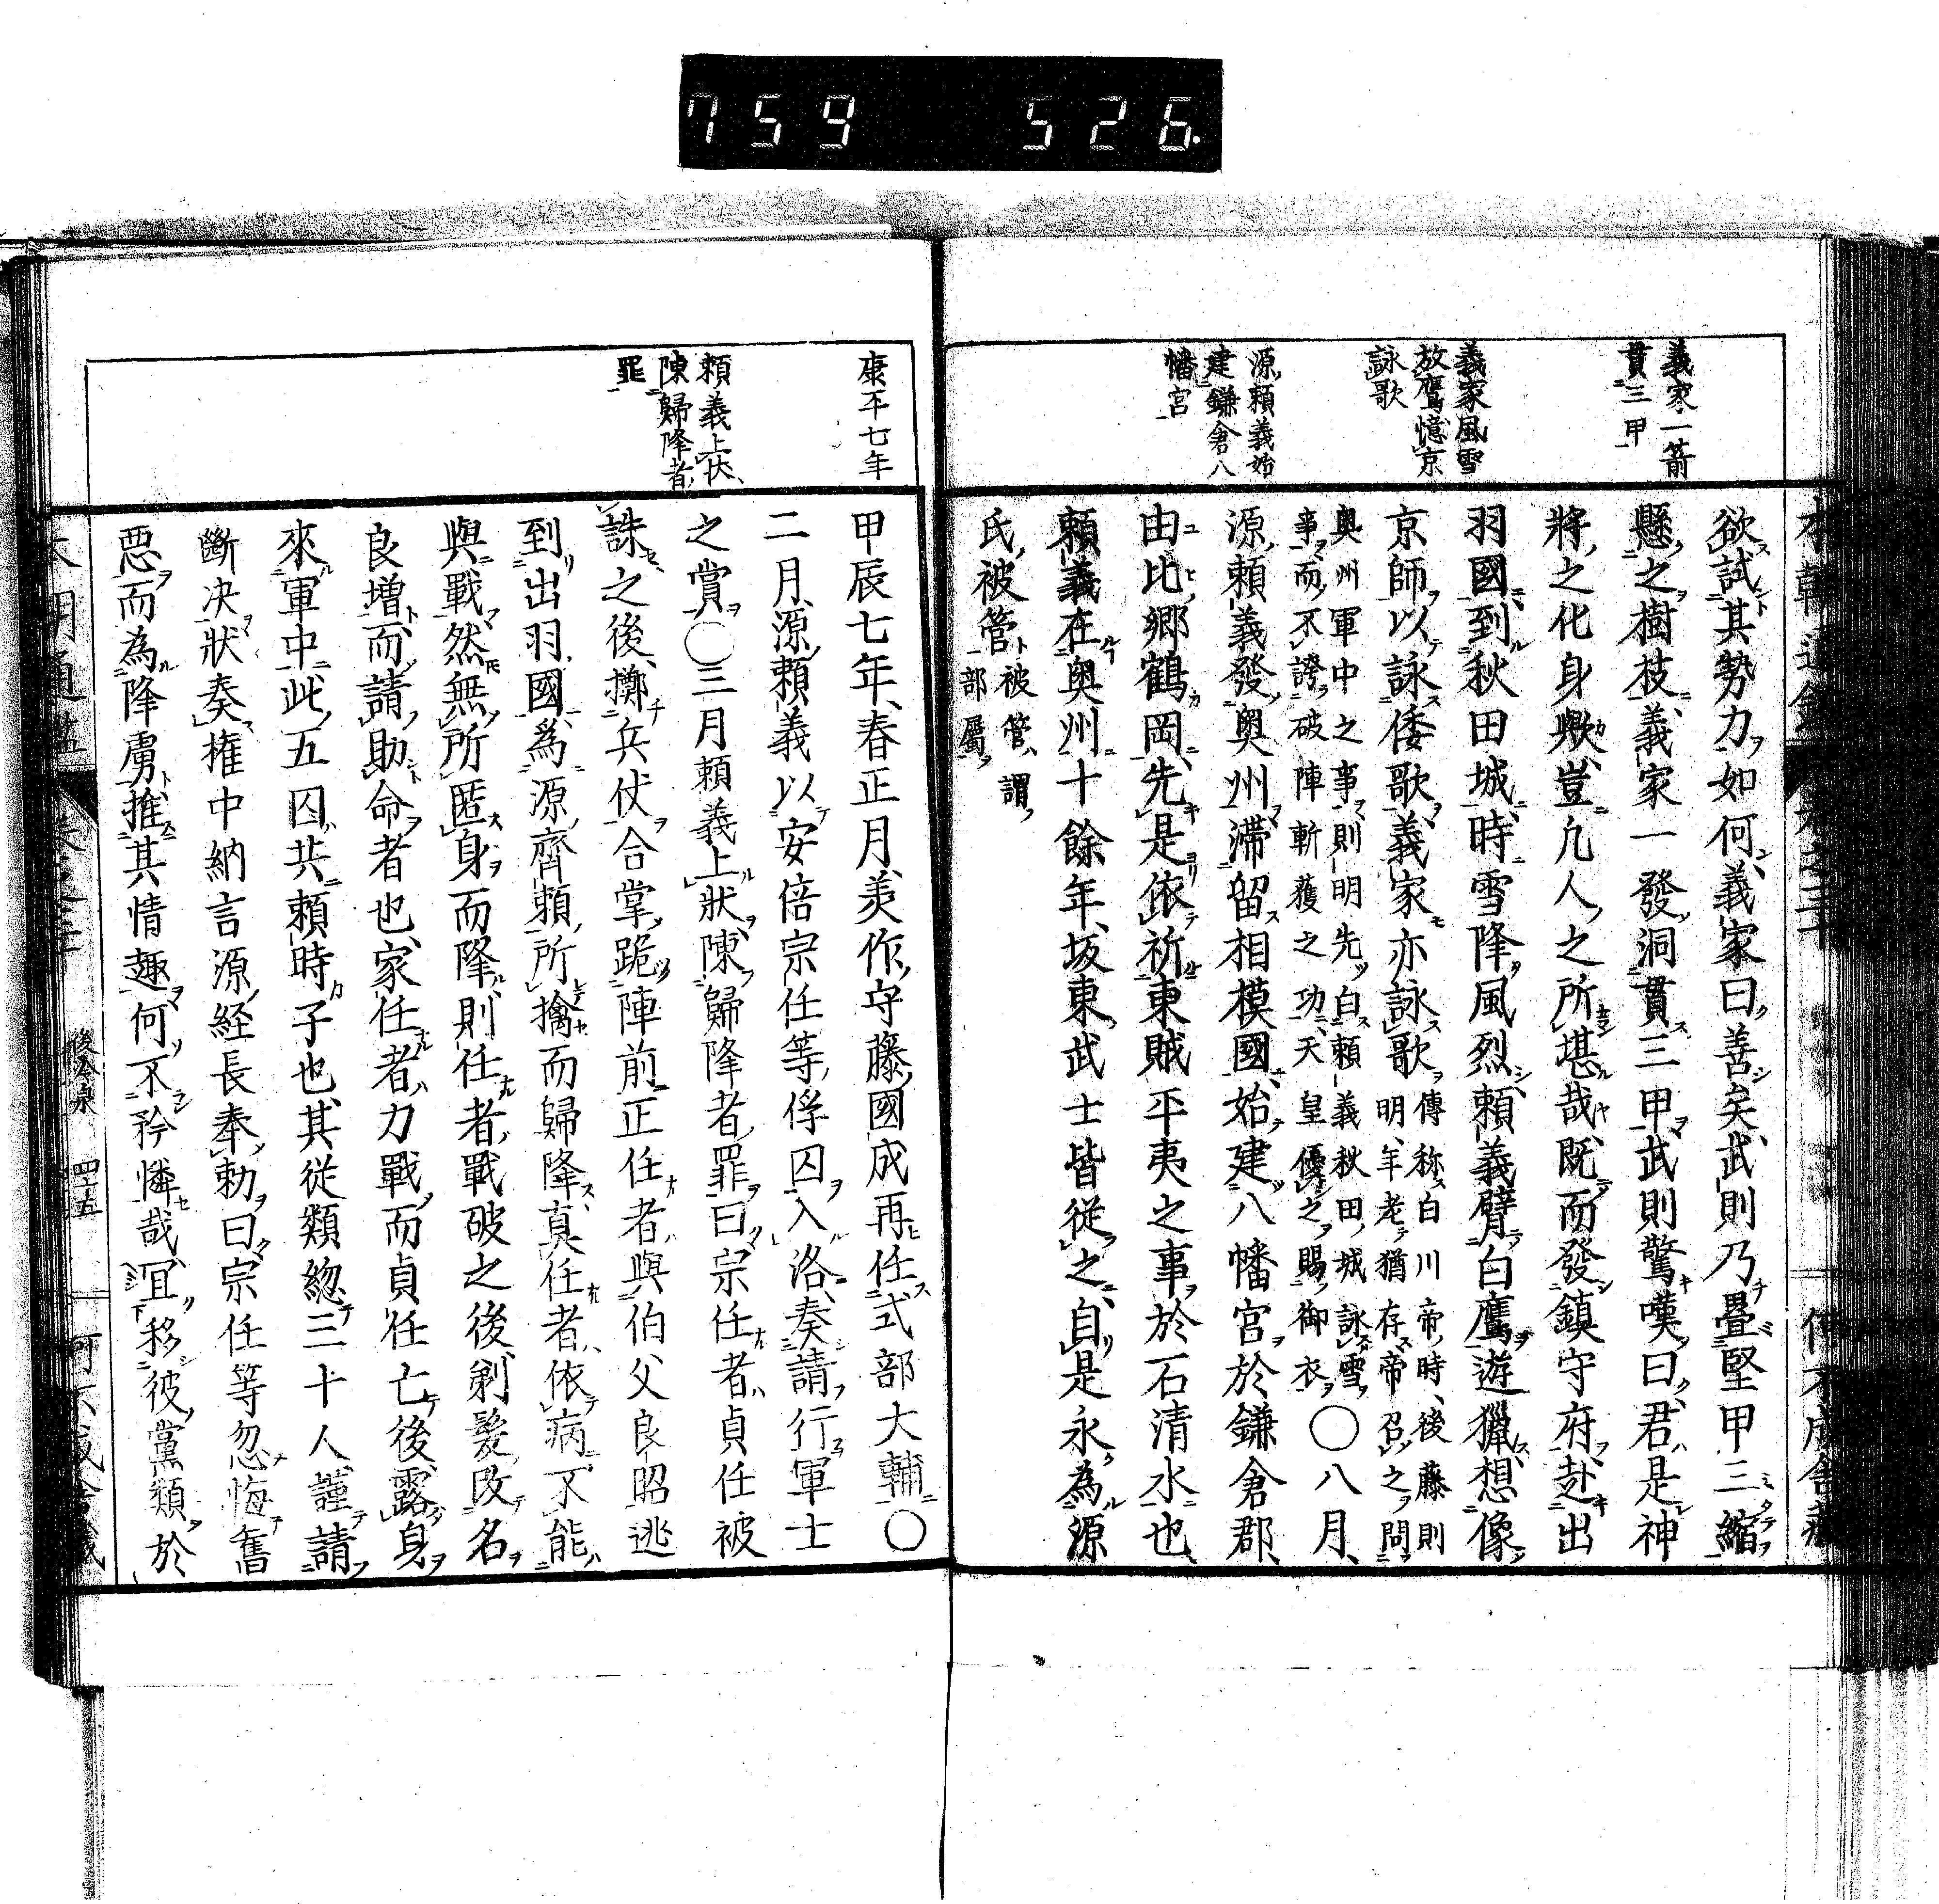 759 526.
義家一箭
貫三甲
義家風雪
放鷹憶京
詠歌
源頼義始
建鎌倉八
幡宮
欲試其勢力如何義家曰善矣武則乃疊堅甲三縮
懸之樹枝義家一發洞貫三甲武則驚嘆曰君是神
將之化身歟豈凢人之所堪哉既而發鎮守府赴出
羽國到秋田城時雪降風烈頼義臂白鷹遊獵想像
京師以詠倭歌義家亦詠歌
傳称白川帝時後藤則
明年老猶存帝召之問
奥州軍中之事則明先白頼義秋田城詠雪
事而不誇破陣斬獲之功天皇優之賜御衣
〇八月
源頼義發奥州滞留相模國始建八幡宮於鎌倉郡
由比郷鶴岡先是依祈東賊平夷之事於石清水也
頼義在奥州十餘年坂東武士皆従之自是永為源
氏被管
被管謂
部屬
康平七年
頼義上状
陳歸降者
罪
甲辰七年春正月美作守藤國成再任式部大輔〇
二月源頼義以安倍宗任等俘囚入洛奏請行軍士
之賞〇三月頼義上狀陳歸降者罪曰宗任者貞任被
誅之後擲兵仗合掌跪陣前正任者與伯父良昭逃
到出羽國爲源齊頼所擒而歸降真任者依病不能
與戰然無所匿身而降則任者戰破之後剃髪改名
良増而請助命者也家任者力戰而貞任亡後露身
來軍中此五囚共頼時子也其従類緫三十人謹請
斷决狀奏権中納言源経長奉勅曰宗任等忽悔舊
悪而為降虜推其情趣何不矜憐哉宜移彼黨類於
後冷泉
四十五